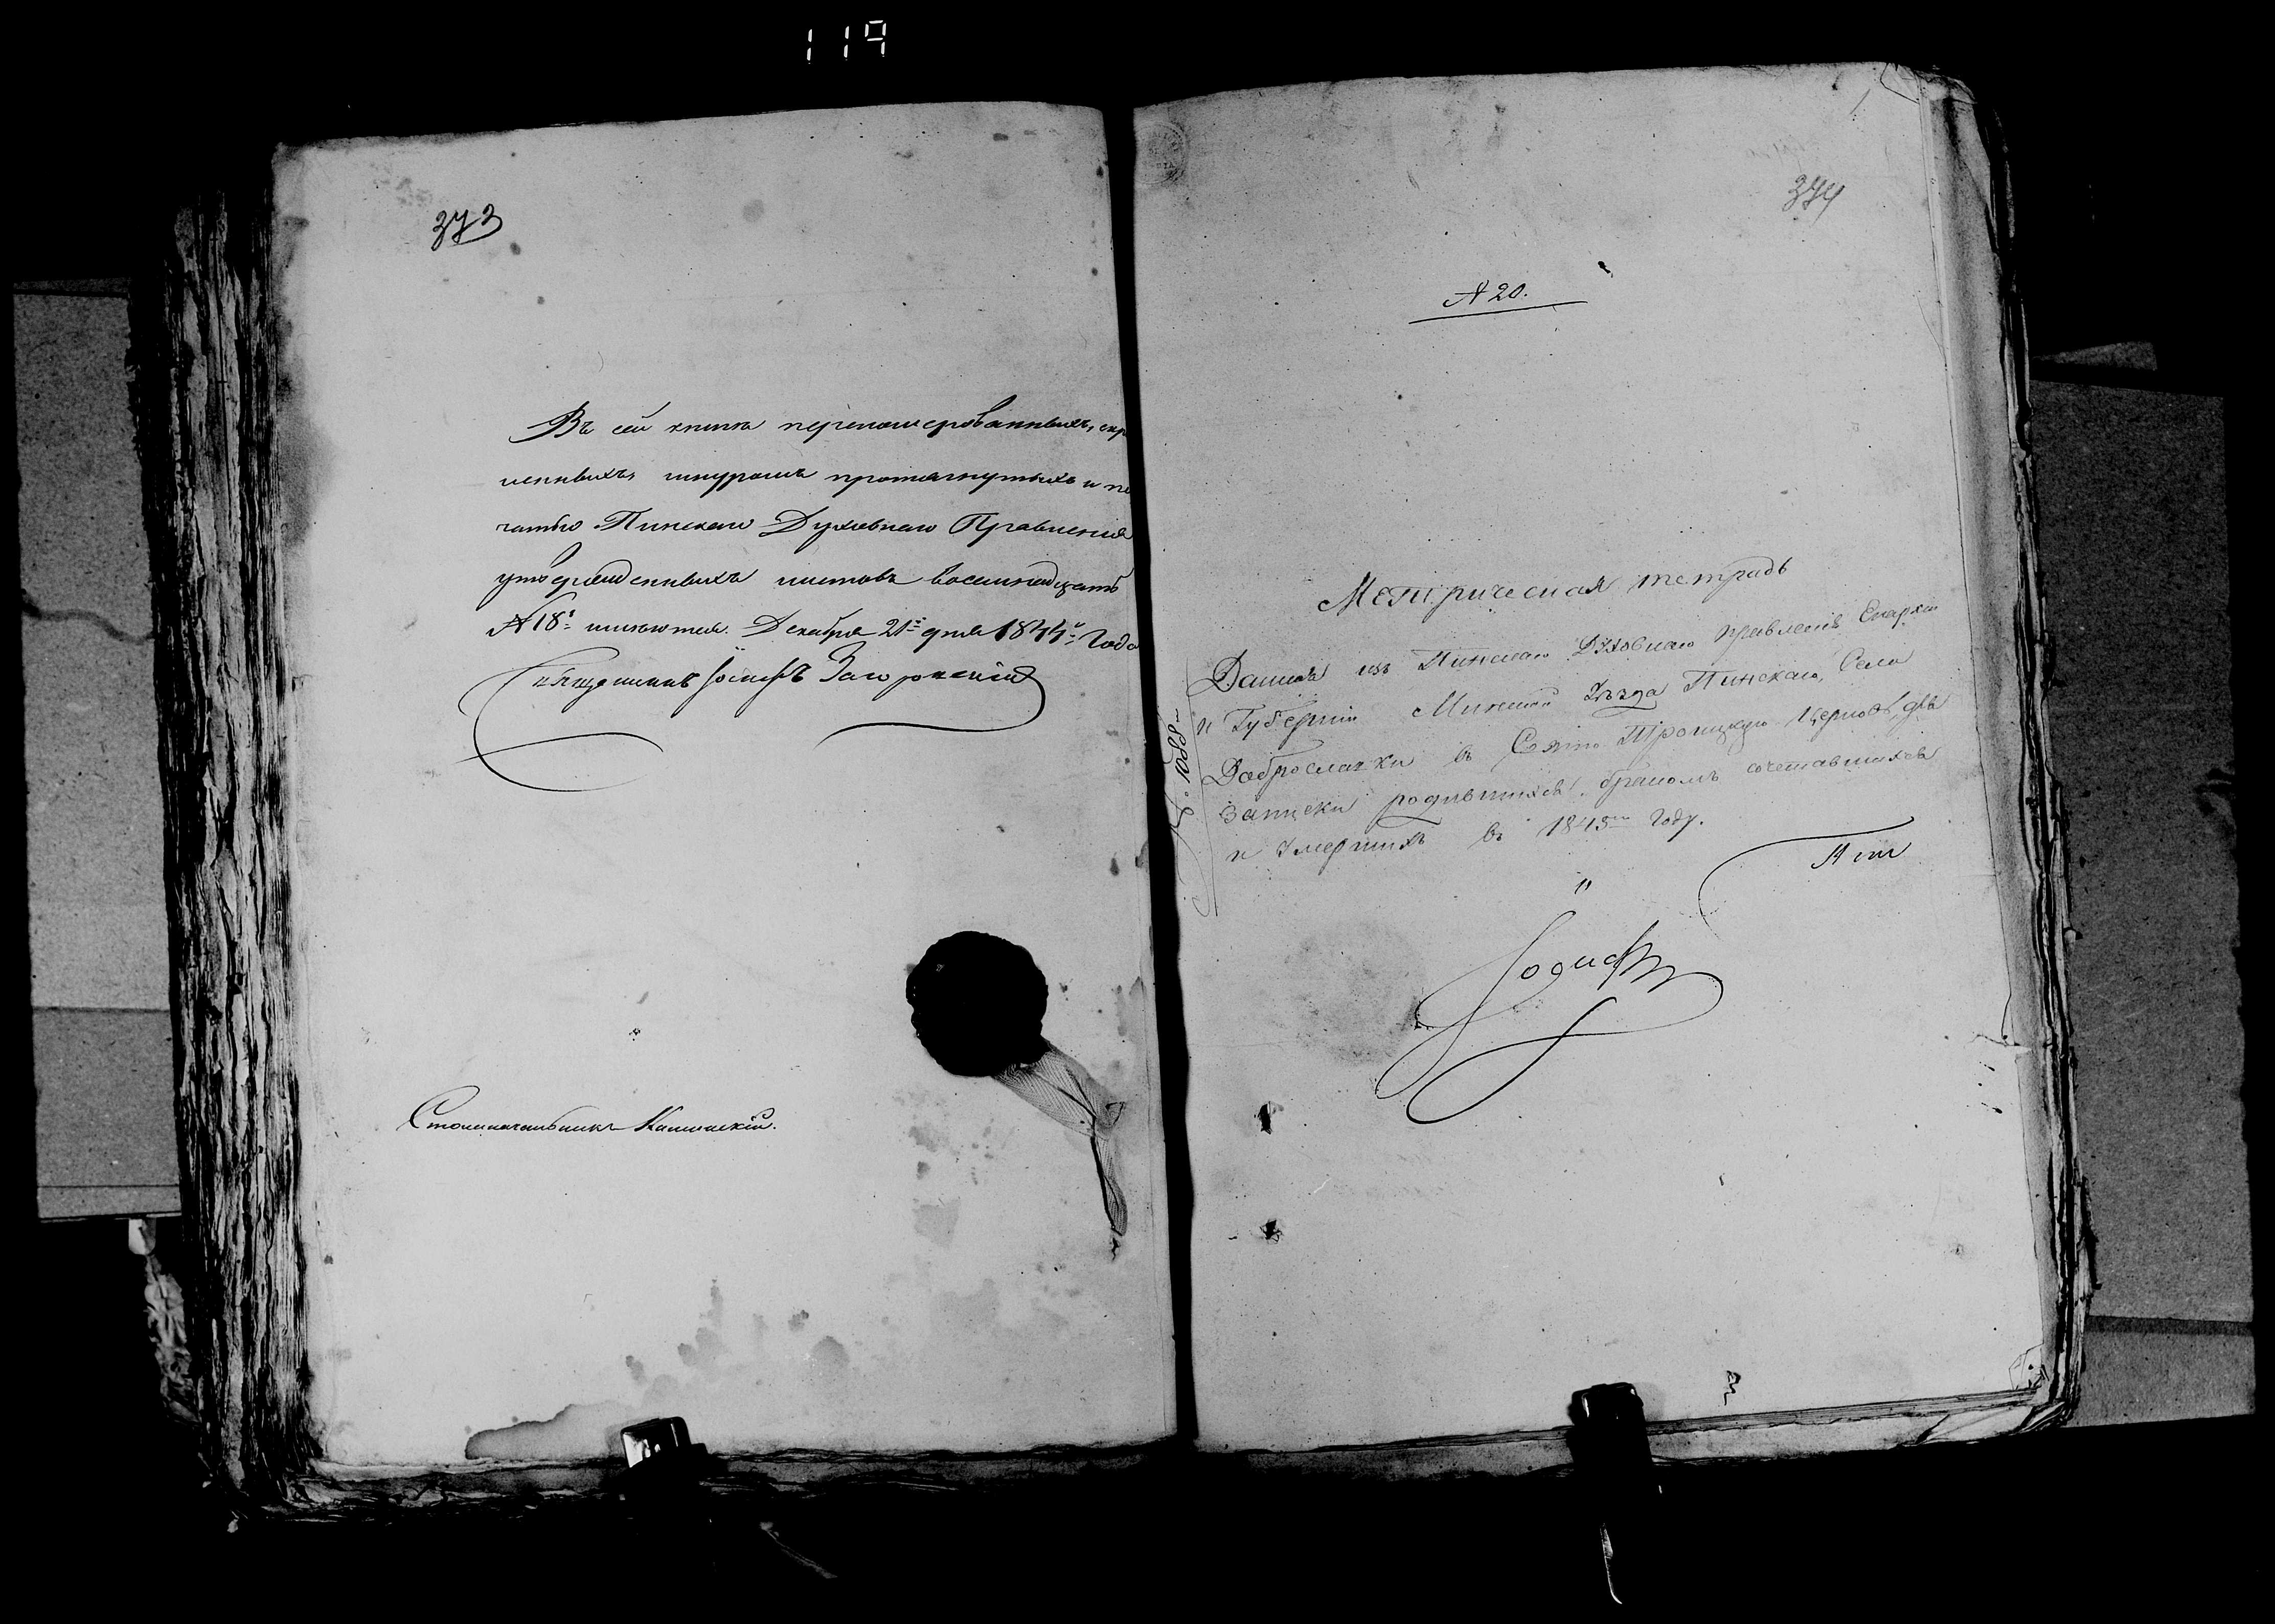 119
373
Въ сей книгѣ переномерованныхъ, скрѣ
пленныхъ, шнуромъ протягнутыхъ и пе
чатью Пинскаго Духовнаго Правленія
утвержденныхъ листовъ восемнадцать
№ 18й имѣются. Декабря 21го дня 1844го Года
Священникъ Іосифъ Загоровскій
Столоначальникъ
374
№ 20.
Метрическая тетрадь
Данная изъ Пинскаго Духовнаго Правленія Епархіи
и Губерніи Минской Уѣзда Пинскаго, Села
Доброславки въ Свято Троицкую Церковь, для
Записки родившихся, бракомъ сочетавшихся
и Умершихъ въ 1845мъ Году.
№. 1088